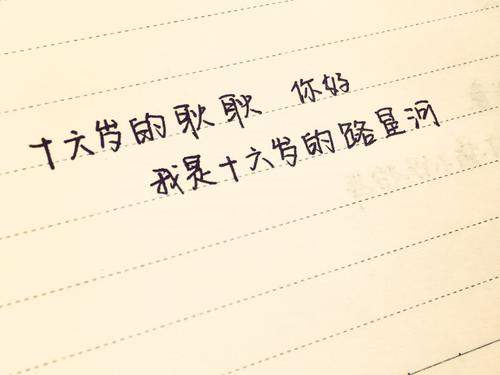 十六岁的耿耿 你好
我是十六岁的路星河